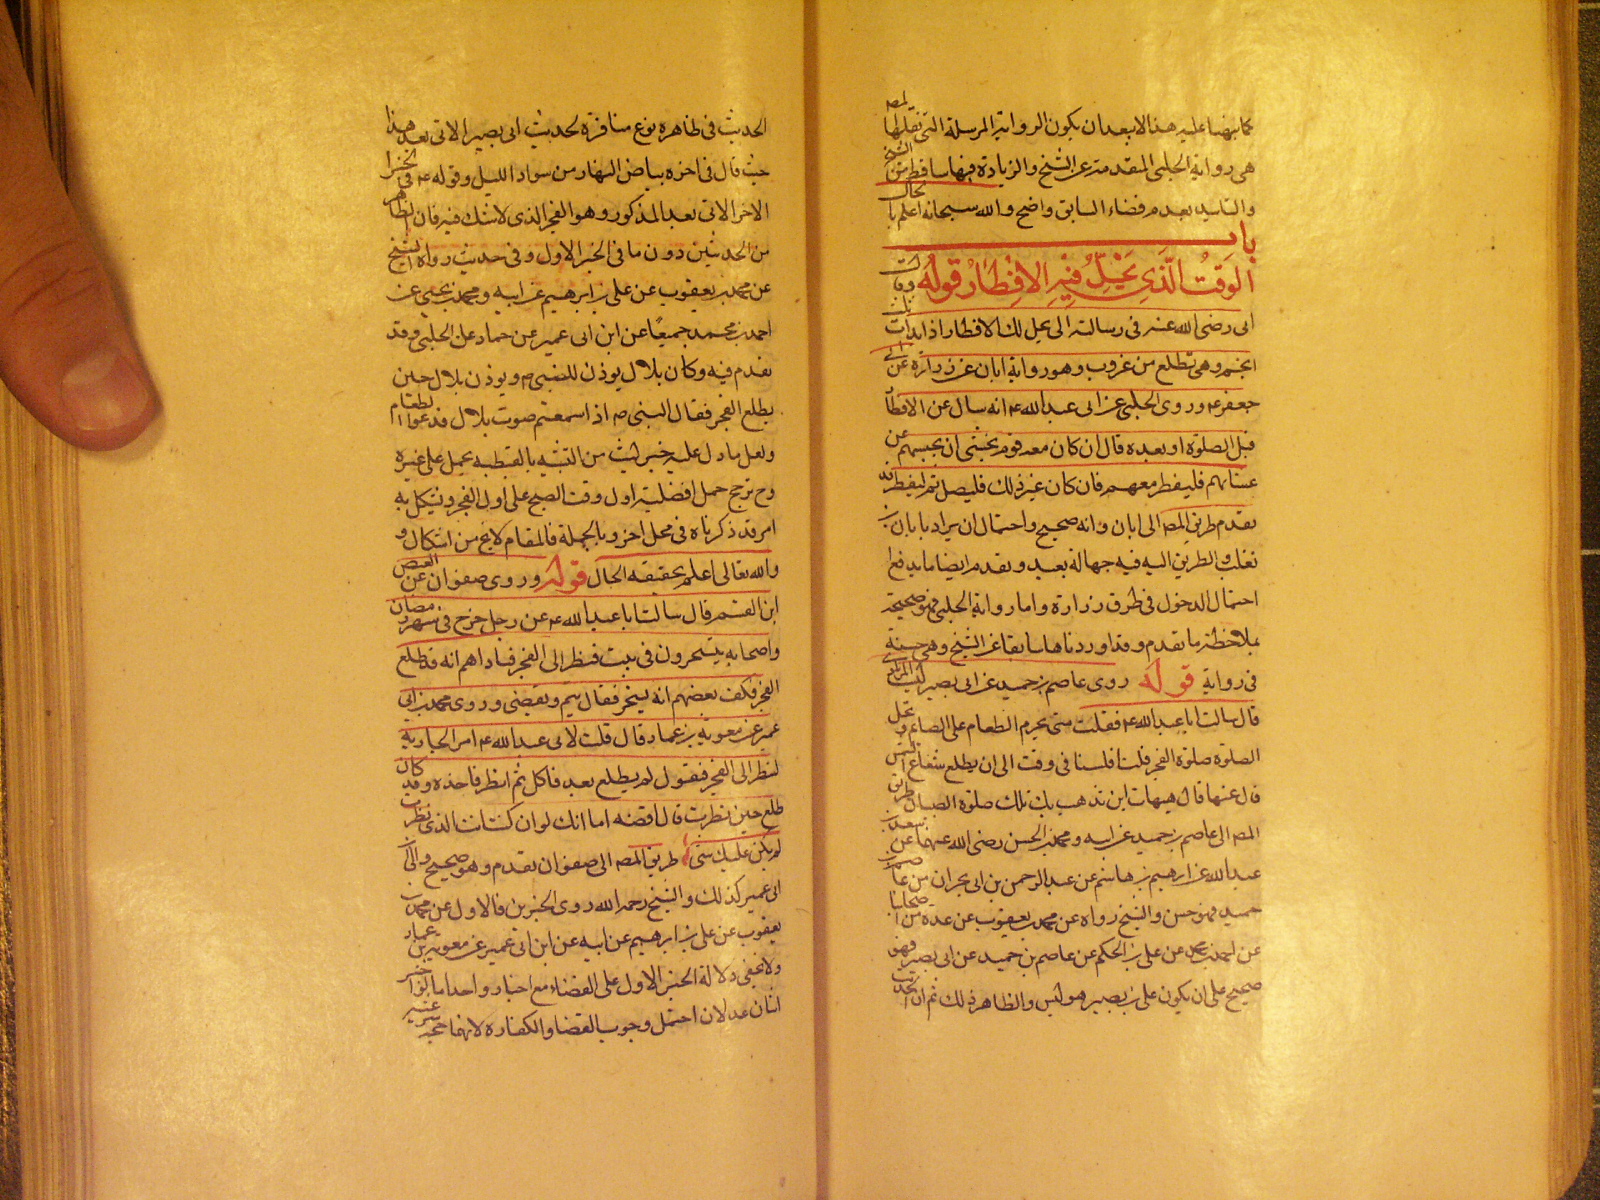 كما نبهنا عليه هذا الا بعد ان يكون الرواية المرسلة التى نقلها المصه
هى رواية الحلبى المتقدمة عن الشيخ والزيادة فيها ساقط من الشيخ
والتاييد بعدم قضاء السابق واضح والله سبحانه اعلم بالحال
باب
الوقت الذى يحل فيه الافطار قوله وقال
ابى رضى الله عنه فى رسالته الى يحل لك الافطار اذا بدأت ثلث
انجم وهى تطلع من غروب وهو رواية ابان عن زرارة عن ابى
جعفر ع وروى الحلبى عن ابى عبد الله ع انه سال عن الافطار
قبل الصلوة او بعده قال ان كان معه قوم يخشى ان يحبسهم عن
عشائهم فليفطر معهم فان كان غير ذلك فليصل ثم ليفطر قد
تقدم طريق المصه الى ابان وانه صحيح واحتمال ان يراد بابان بن
تغلب والطريق اليه فيه جهالة بعيد وتقدم ايضا ما يدفع
احتمال الدخول فى طرق زرارة واما رواية الحلبى فهو صحيحة
بملاحظة ما تقدم وقد اوردناها سابقا عن الشيخ وهى حسنة
فى رواية قوله روى عاصم بن حميد عن ابى بصير ليث المرادى
قال سالت ابا عبد الله ع فقلت متى يحرم الطعام على الصائم وتحل
الصلوة صلوة الفجر قلت فلسنا فى وقت الى ان يطلع شعاع الشمس
قال عنها قال هيهات اين تذهب بك تلك صلوة الصبيان طريق
المصه الى عاصم بن حميد عن ابيه ومحمد بن الحسن رضى الله عنهما عن سعد بن
عبد الله عن ابرهيم بن هاشم عن عبد الرحمن بن ابى نجران عن عاصم بن
حميد فهو حسن والشيخ رواه عن محمد بن يعقوب عن عدة من اصحابنا
عن احمد بن محمد عن على بن الحكم عن عاصم بن حميد عن ابى بصير فهو
صحيح على ان يكون على بن بصير هو ليس والظاهر ذلك ثم ان
الحديث فى ظاهره نوع منافرة لحديث ابى بصير الاتى بعد هذا
حيث قال فى اخره بياض النهار من سواد الليل وقوله ع فى الخبر
الاخر الاتى بعد المذكور وهو الفجر الذى لا شك فيه فان الظاهر
من الحديثين دون ما فى الخبر الاول وفى حديث رواه الشيخ
عن محمد بن يعقوب عن على بن ابرهيم عن ابيه ومحمد بن يحيى عن
احمد بن محمد جميعًا عن ابن ابى عمير عن حماد عن الحلبى وقد
تقدم فيه وكان بلال يوذن للنبى ص ويوذن بلال حين
يطلع الفجر فقال النبى ص اذا سمعتم صوت بلال فدعوا الطعام
ولعل ما دل عليه خبر ليث من التشبيه بالقبطيه يحمل على غيره
وح ترجح حمل افضلية اول وقت الصبح على اول الفجر ويشكل به
امر قد ذكرناه فى محل اخر وبالجملة فالمقام لا يخ من اشكال و
والله تعالى اعلم بحقيقه الحال قوله وروى صفوان عن العيص
ابن القسم قال سالت ابا عبد الله ع عن رجل خرج فى شهر رمضان
واصحابه يتسحرون فى بيت فنظر الى الفجر فناداهم انه قد طلع
الفجر فكف بعضهم انه يسخر فقال يتم ويقضى وروى محمد بن ابى
عمير عن معوية بن عمار قال قلت لابى عبد الله ع امر الجارية
لتنظر الى الفجر فتقول لم يطلع بعد فاكل ثم انظر فاجده وقد كان
طلع حين نظرت قال اقضه اما انك لو ان كنت انت الذى نظرت
لم يكن عليك شئ طريق المصه الى صفوان تقدم وهو صحيح والى ابن
ابى عمير كذلك والشيخ رحمه الله روى الخبرين فالاول عن محمد بن
يعقوب عن على بن ابرهيم عن ابيه عن ابن ابى عمير عن معوية بن عمار
ولا يخفى دلالة الخبر الاول على القضاء مع اخبار واحد اما لو اخبر
اثنان عدلان احتمل وجوب القضا والكفارة لانهما حجة شرعية